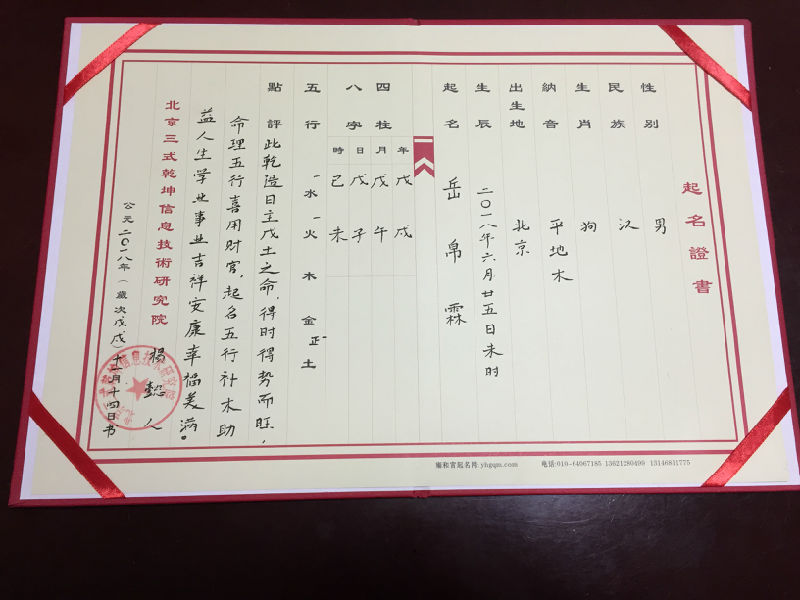 起名證書
性別 男
民族 汉
生肖 狗
納音 平地木
出生地 北京
生辰 二〇一八年六月廿五日未时
起名 岳帛霖
年 戊 戌
四柱 月 戊 午
八字 日 戊 子
時 己 未
五行 水 火 木 金 土
點評 此乾造日主戊土之命，得时得势而旺，
命理五行喜用财官，起名五行补木助
益人生学业事业吉祥安康幸福美满。
北京三式乾坤信息技術研究院 杨懿人
公元二〇一八年（歲次戊戌）十一月十四日书
雍和宫起名网:yhgqm.com 电话:010-64067185 13621280499 13146811775